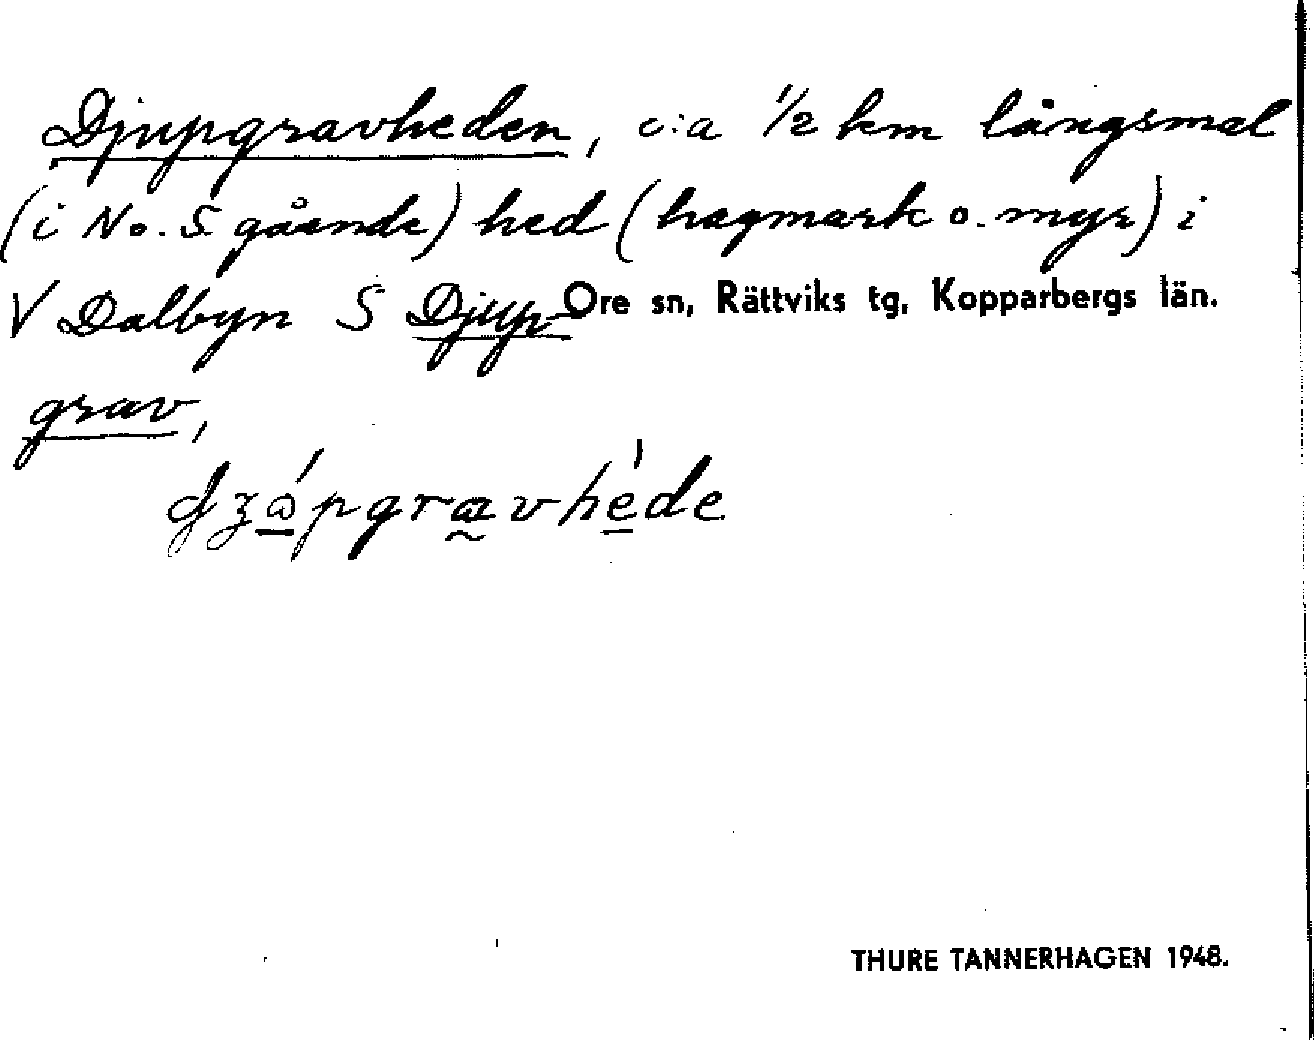 Djupgravheden, c:a 1/2 km långsmal
(i N o. S gående) hed (hagmark o. myr) i
V Dalbyn S Djup-
Ore sn, Rättviks tg, Kopparbergs län.
grav,
THURE TANNERHAGEN 1948.